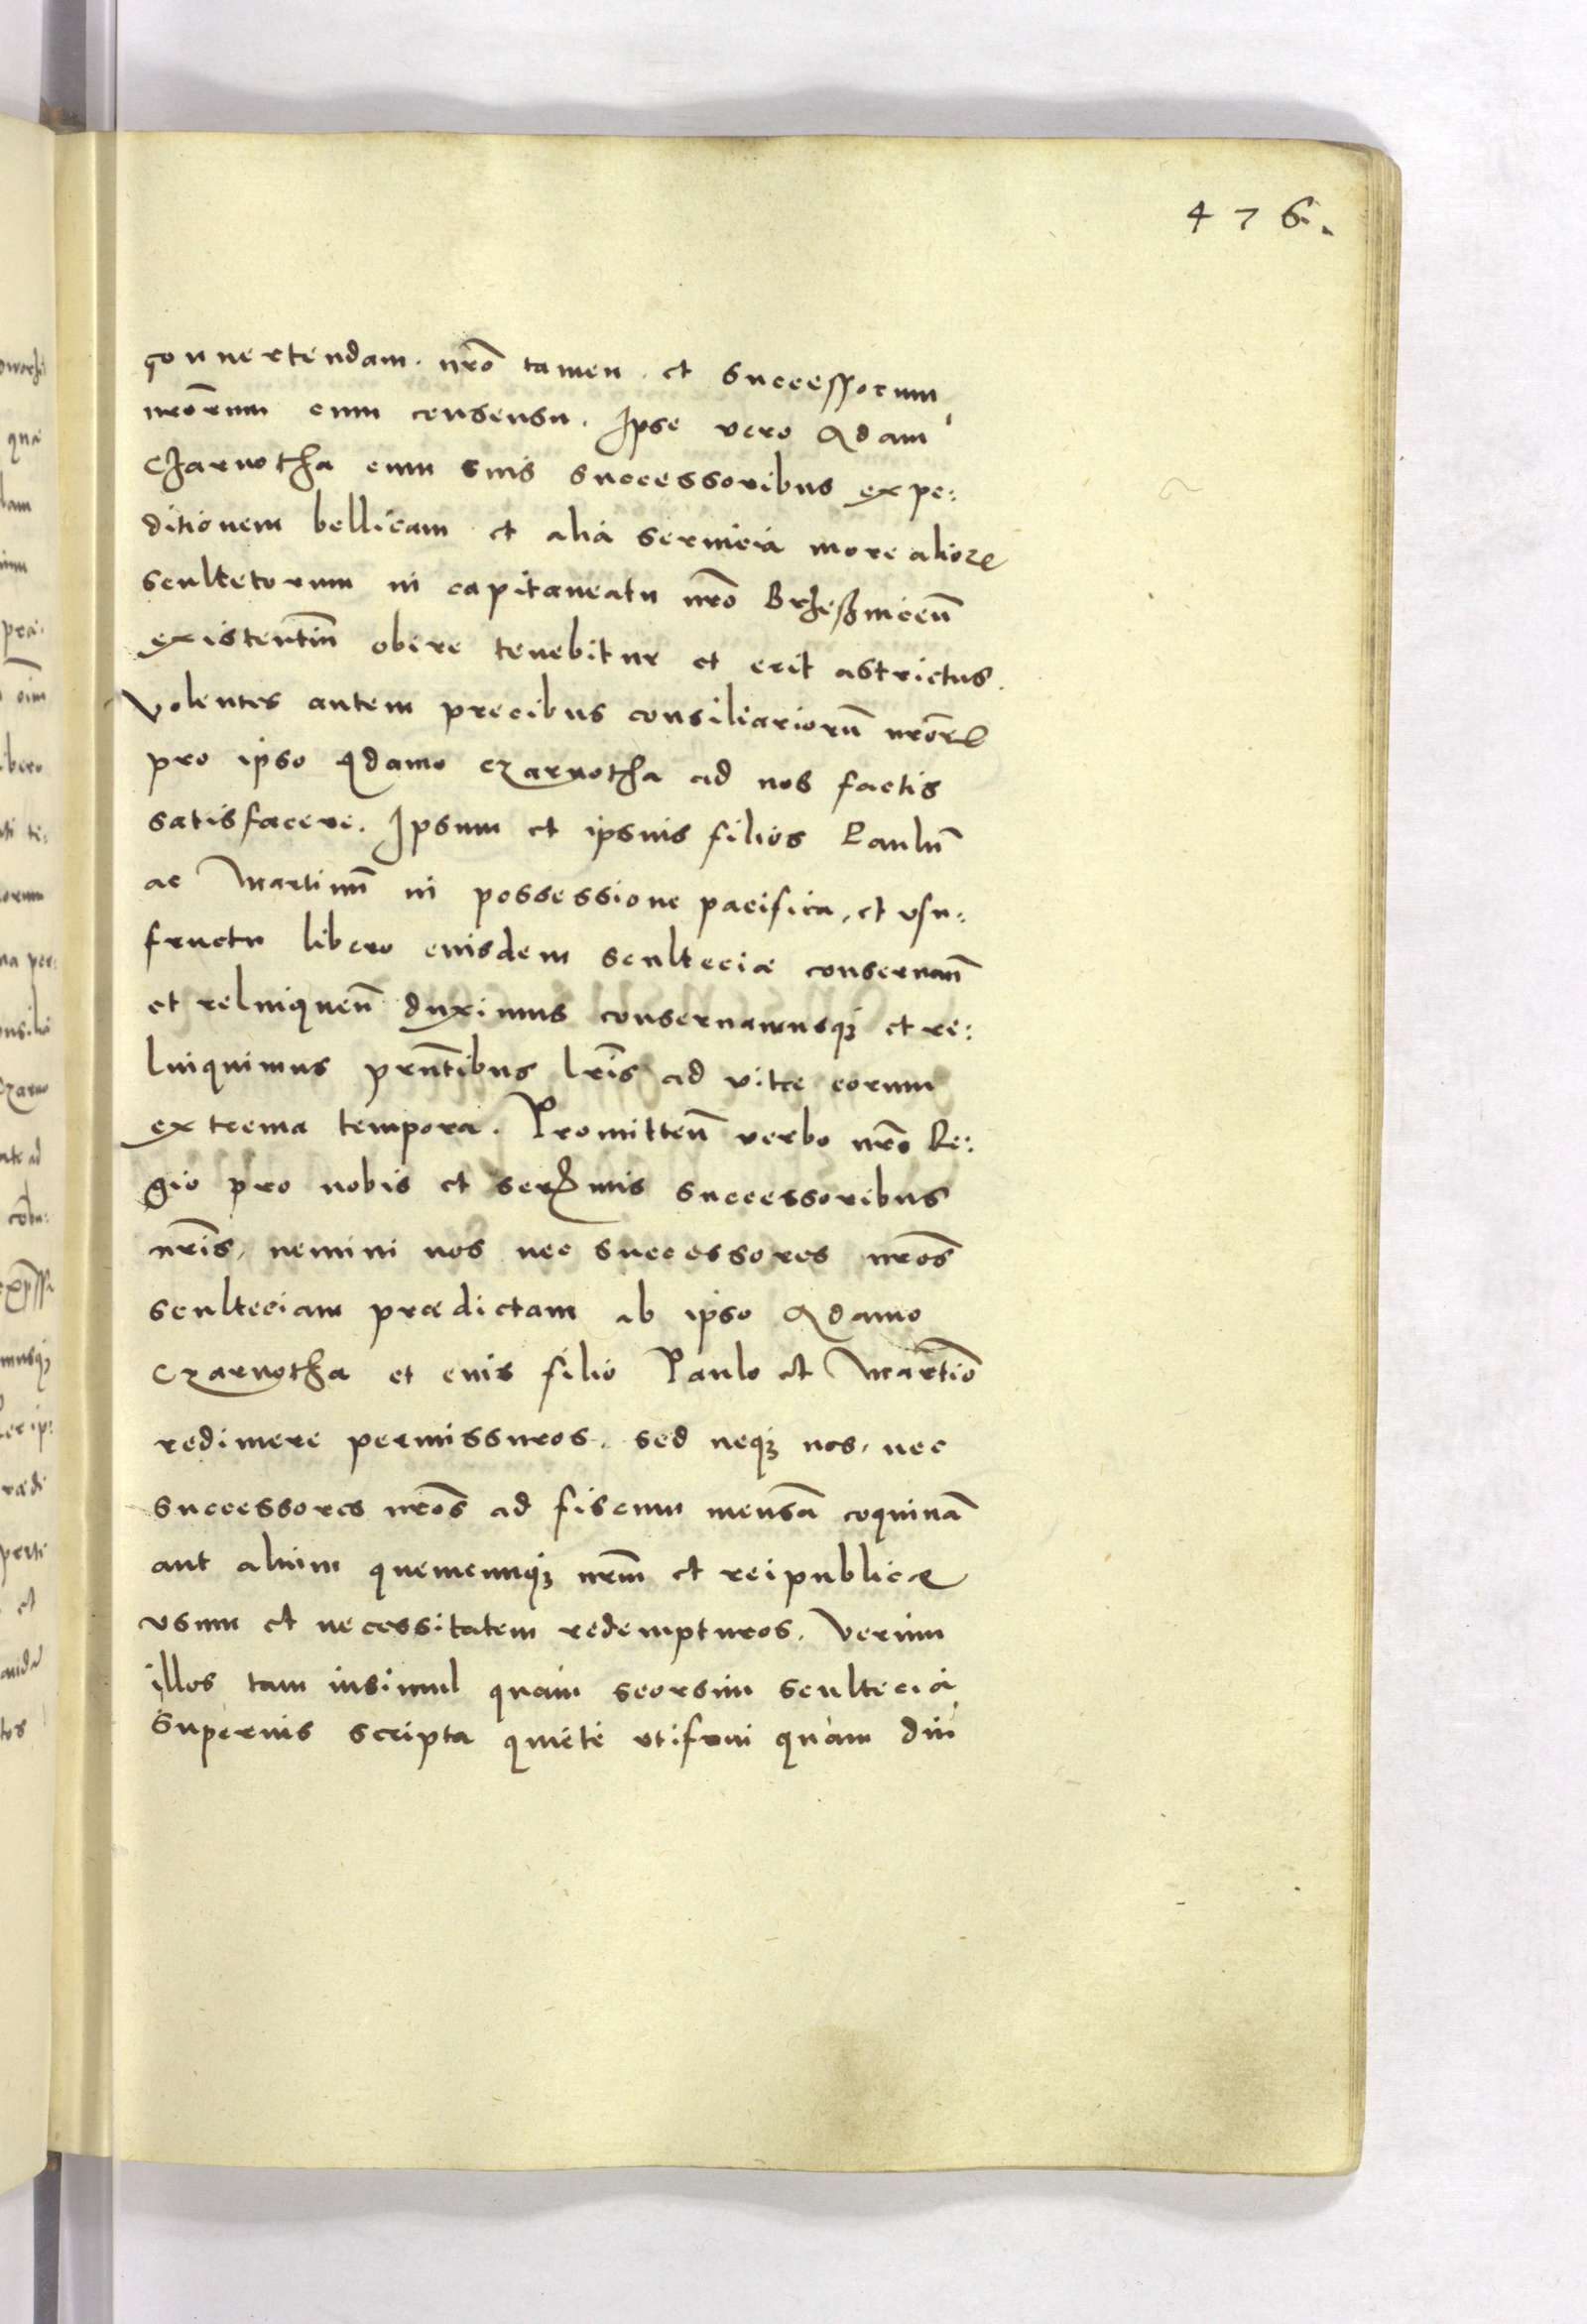 476.
conuertendam. nrõ tamen. et successorum
nrõrum cum consensu. Ipse vero Adam
Czarnotha cum suis successoribus expe:
ditionem bellicam et alia seruicia more alior
scultetorum in capitaneatu nrõ Brzesznicen̄
existentiũ obire tenebitur et erit astrictus.
Volentes autem precibus consiliariorũ nrõr
pro ipso Adamo Czarnotha ad nos factis
satisfacere. Ipsum et ipsius filios Paulũ
ac Martinũ in possessione pacifica, et vsu:
fructu libero eiusdem sculteciæ conseruan̄
et relinquen̄ duximus conseruamusq3 et re:
linquimus pr̃ntibus lr̃is ad vitæ eorum
extrema tempora. Promitten̄ verbo nrõ Re:
gio pro nobis et Serẽmis successoribus
nr̃is, nemini nos nec successores nrõs
scultetiam prædictam ab ipso Adamo
Czarnotha et euis filio Paulo et Martiõ
redimere permissuros. sed neq3 nos, nec
successores nrõs ad fiscum mensã coquinã
aut alium quemcunq3 nrm̃ et reipublicæ
vsum et necessitatem redempturos. Verum
illos tam insimul quam seorsim scultecia
superius scripta quiete vtifrui quam diu